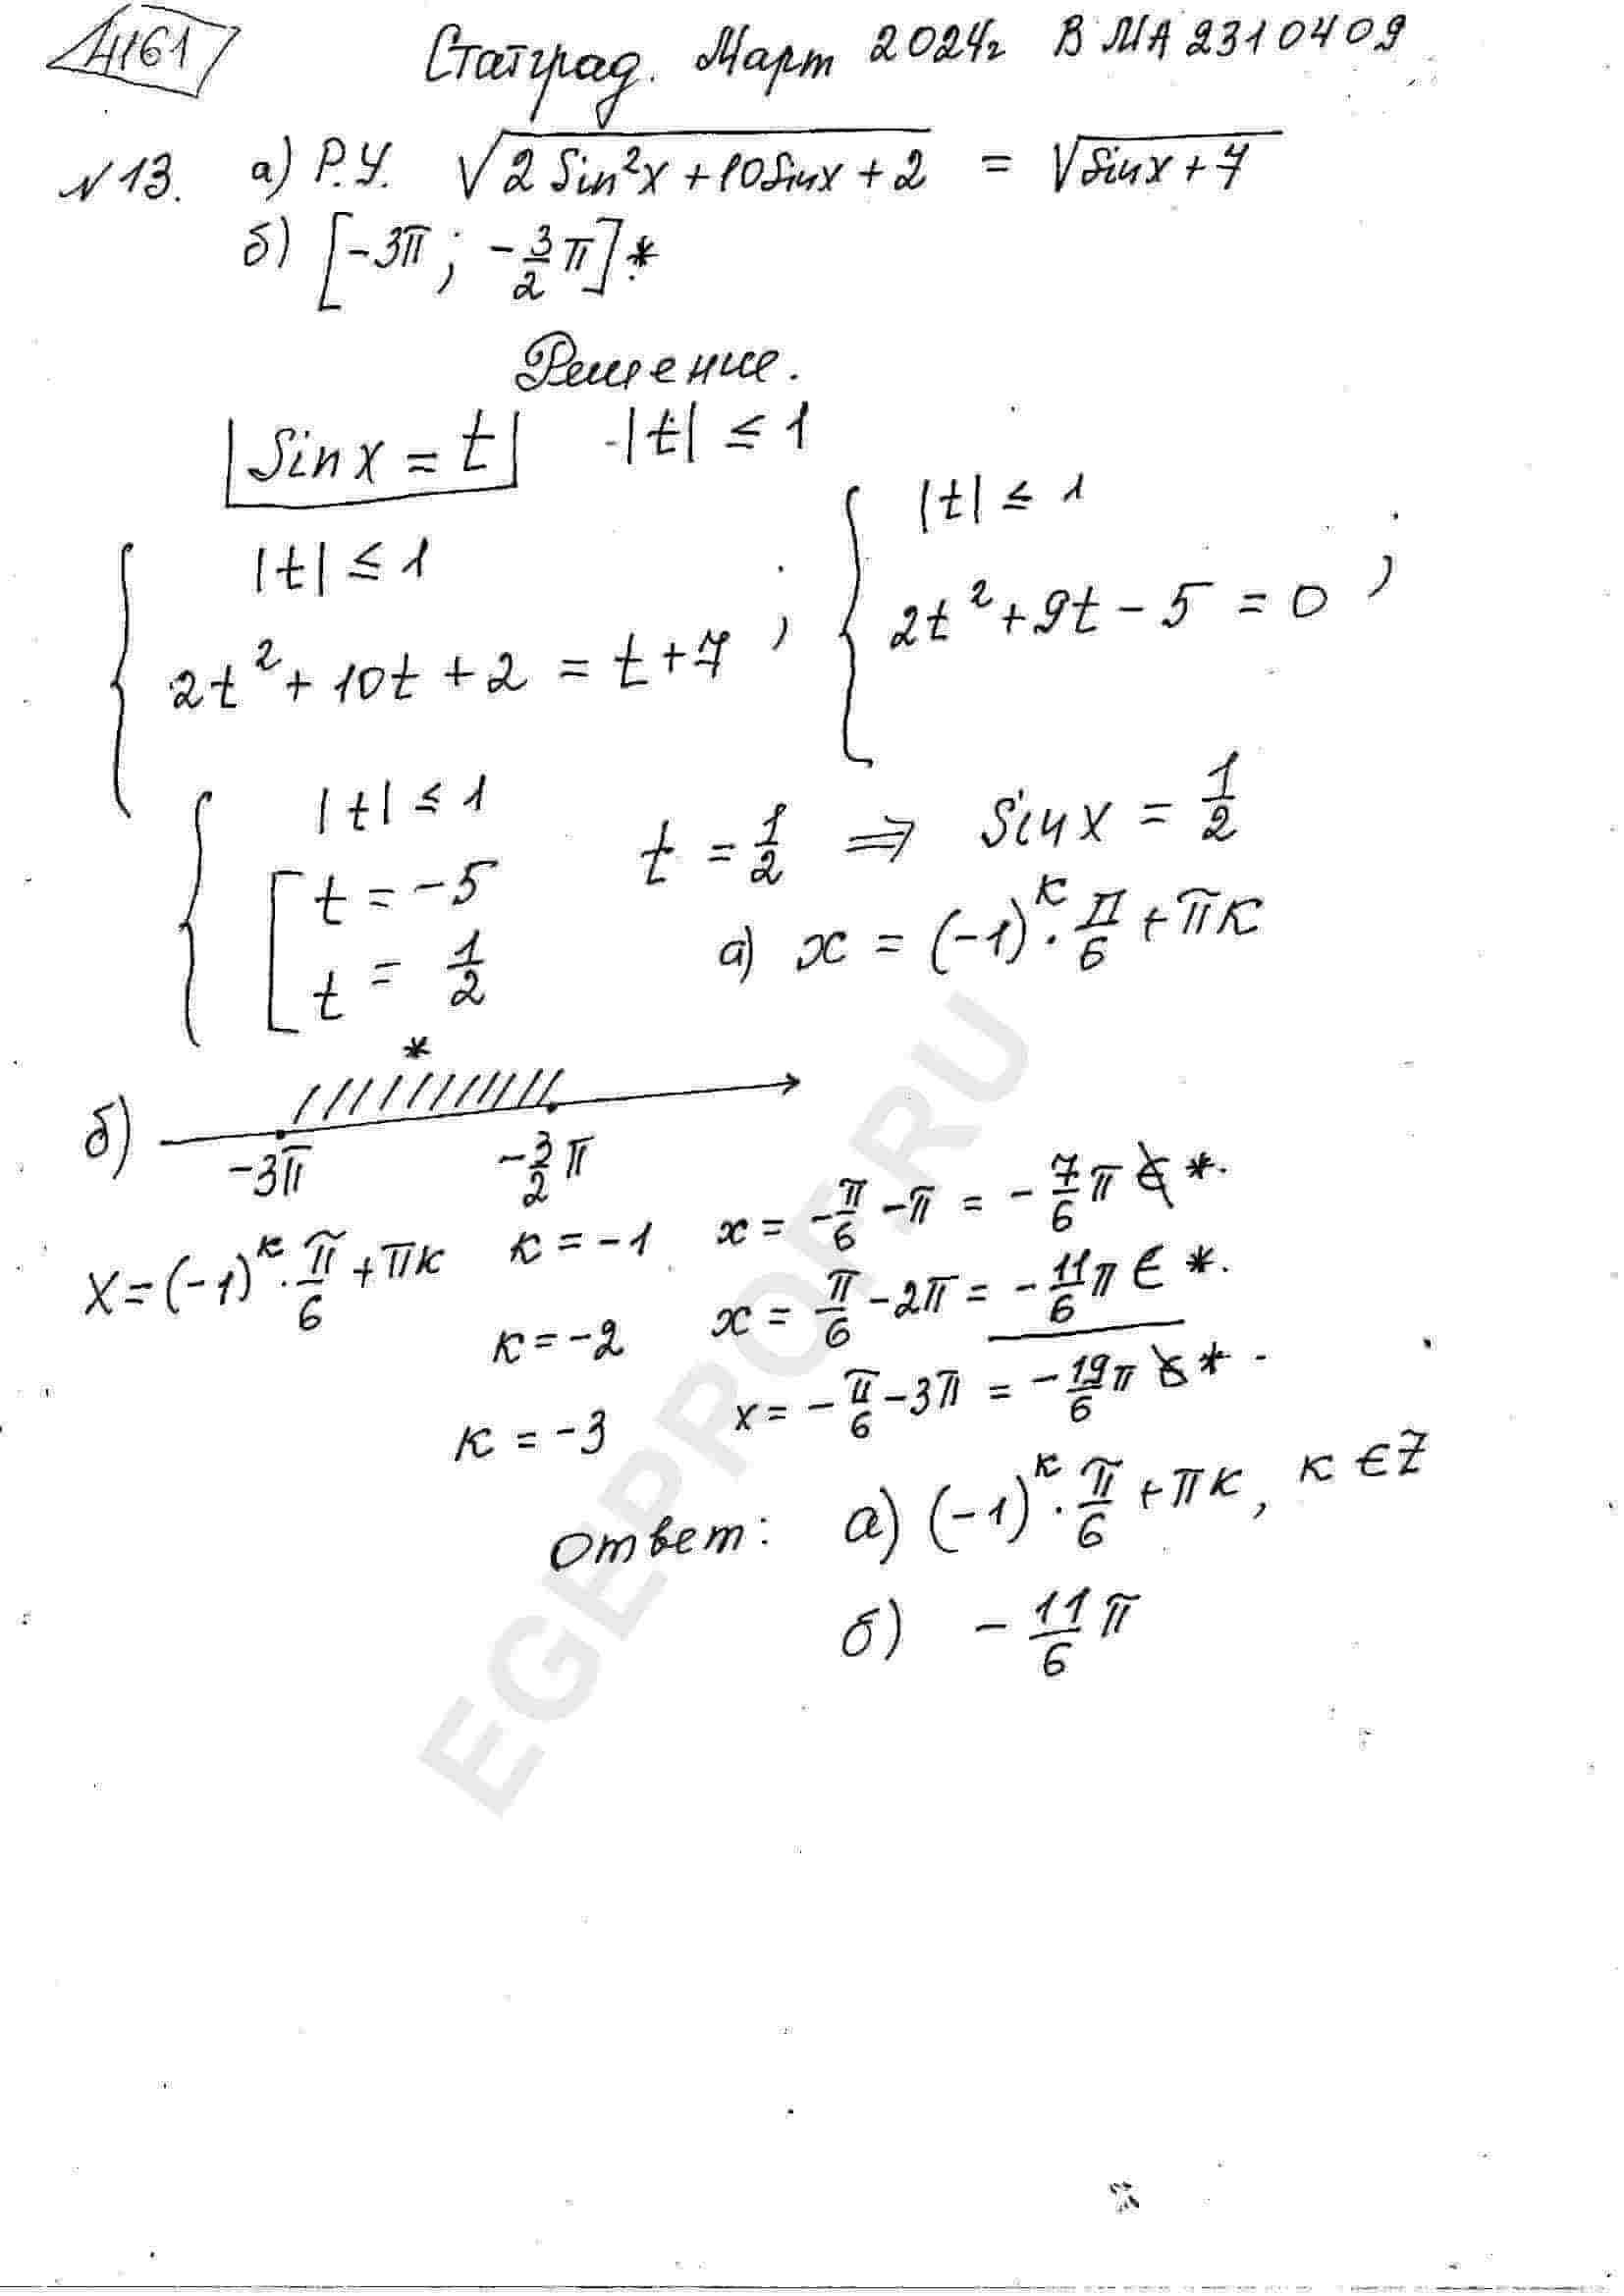 4161
Статград. Март 2024г ВМА2310409
№13. а) Р.У. √(2 Sin²x + 10Sinx + 2) = √(Sinx + 7)
б) [-3π; -3/2 π]*
Решение.
Sinx = t |t| ≤ 1
{ |t| ≤ 1
2t² + 10t + 2 = t + 7 ;
{ |t| ≤ 1
2t² + 9t - 5 = 0 ;
{ |t| ≤ 1
[ t = -5
t = 1/2
t = 1/2 ⇒ Sinx = 1/2
а) x = (-1)^к · π/6 + πк
*
б) -3π -3/2 π
x = (-1)^к · π/6 + πк
к = -1 x = -π/6 - π = -7/6 π ∉ *.
к = -2 x = π/6 - 2π = -11/6 π ∈ *.
к = -3 x = -π/6 - 3π = -19/6 π ∉ *.
Ответ: а) (-1)^к · π/6 + πк, к ∈ Z
б) -11/6 π
EGEPROF.RU